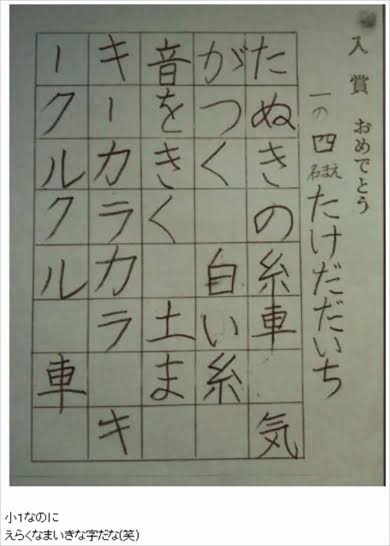 入賞 おめでとう
一の四 名まえ たけだだいち
たぬきの糸車 気
がつく 自い糸
音をきく 土ま
キーカラカラ キ
ークルクル 車
小1なのに
えらくなまいきな字だな(笑)